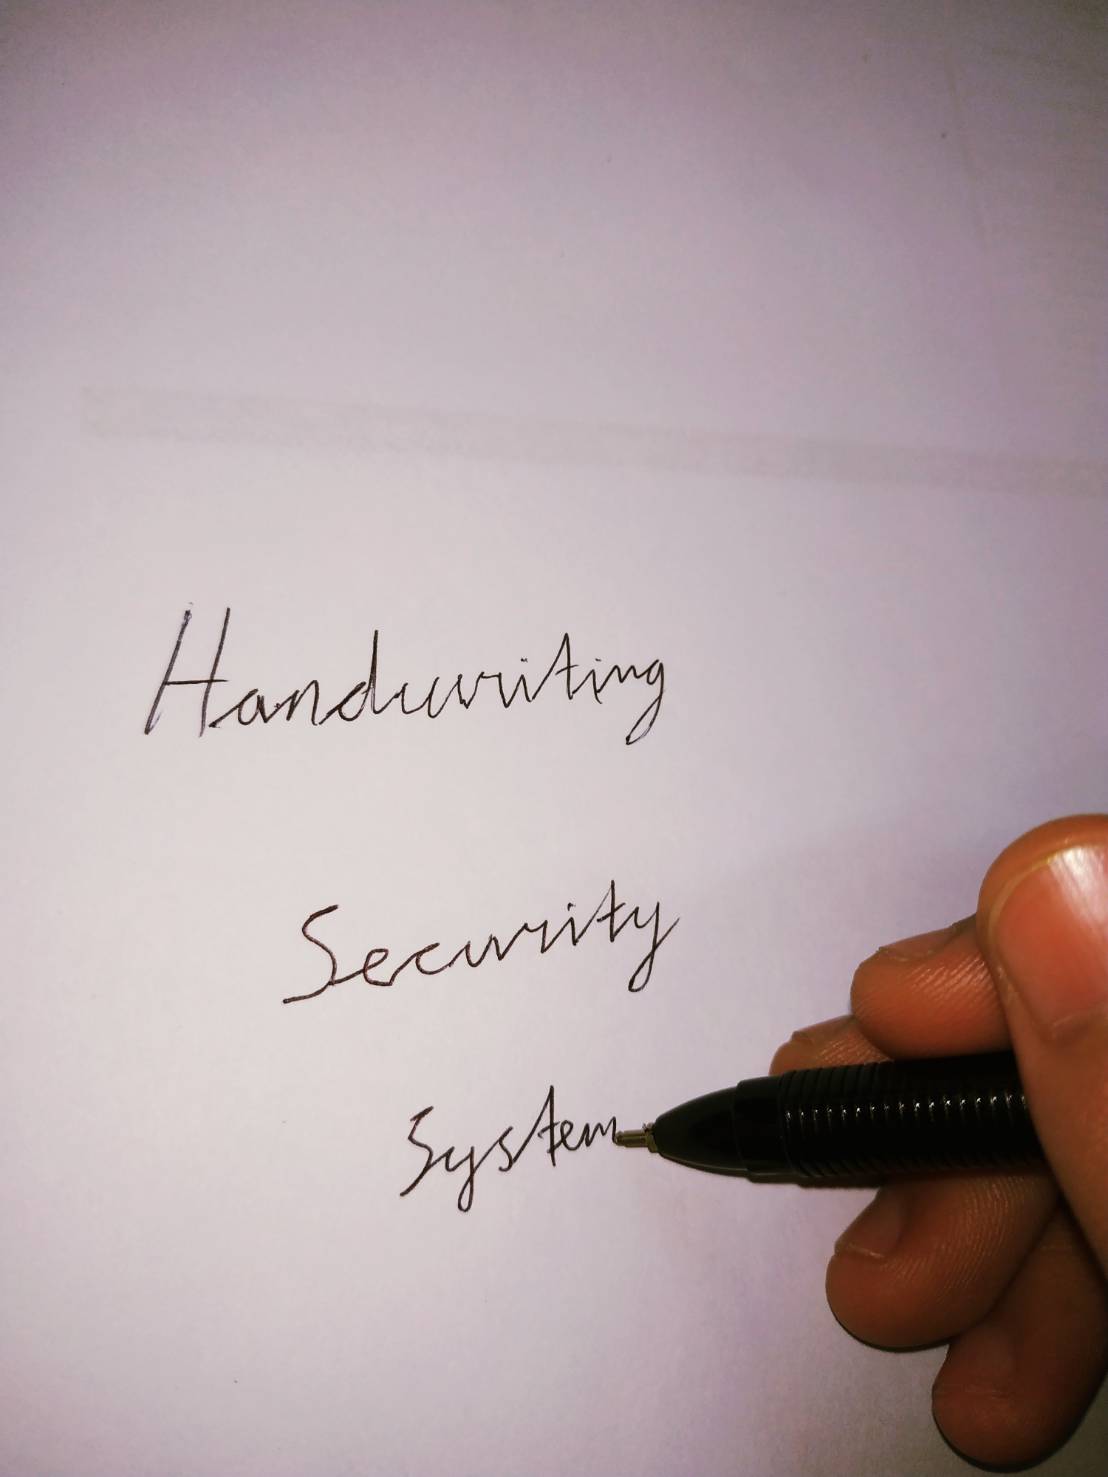 Handwriting
Security
System